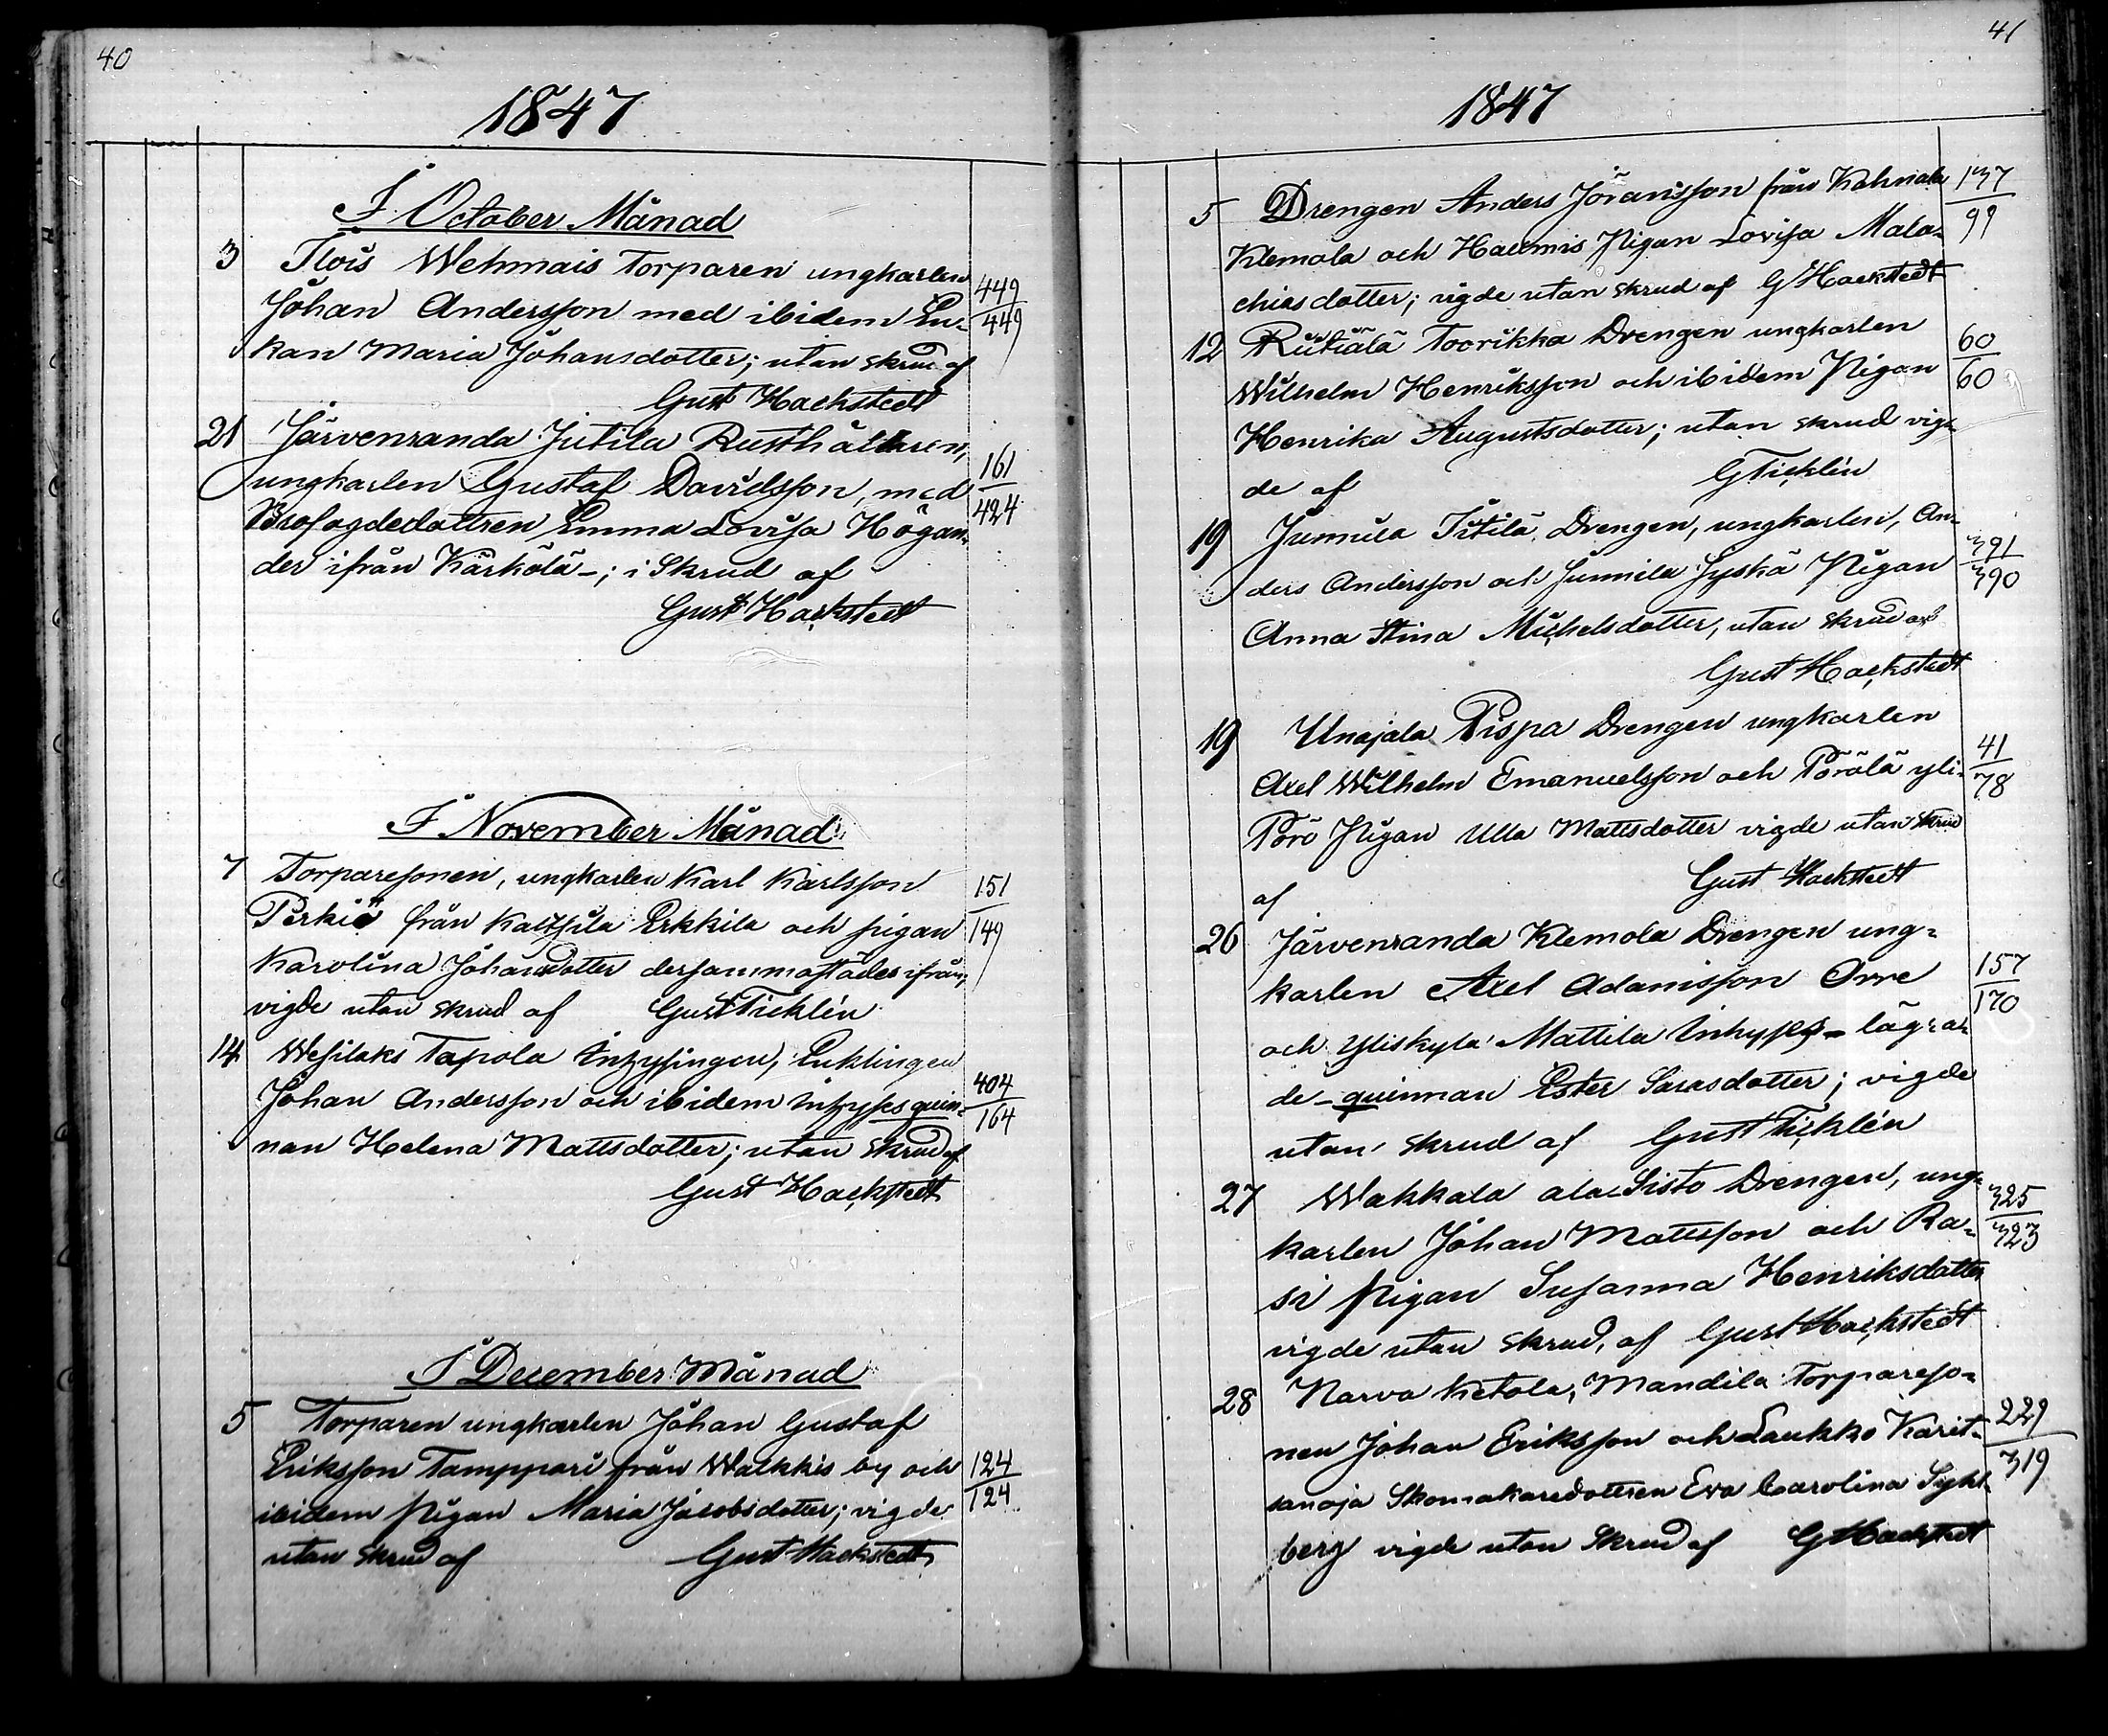 40
1847
I October Månad
3 Flois Wehmais Torparen ungkarlen 449
Johan Andersson med ibidem En- 449
kan Maria Johansdotter; utan skrud af
Gust Hackstedt
21 Järvenranda Jutila Rusthållaren,
ungkarlen Gustaf Davidsson, med 161
Brofogdedottren Emma Lovisa Högan- 424
der ifrån Kärkölä -; i Skrud af
Gust Hackstedt
I November Månad
7 Torparesonen, ungkarlen Karl Karlsson 151
Perkiö från Kaltsila Erkkila och pigan 149
Karolina Johansdotter dersammastädes ifrån;
vigde utan skrud af Gust Ticklén
14 Wesilaks Tapola Inhysingen, Enklingen
Johan Andersson och ibidem inhyses quin- 404
nan Helena Mattsdotter; utan skrud af 164
Gust Hackstedt
I December Månad
5 Torparen ungkarlen Johan Gustaf
Eriksson Tamppari från Walkkis by och 124
ibidem Pigan Maria Jacobsdotter; vigde 124
utan skrud af Gust Hackstedt
41
1847
5 Drengen Anders Jöransson från Kahnala 137
Klemola och Haemis Pigan Lovisa Mala- 99
chiasdotter; vigde utan skrud af G Hackstedt
12 Riitiälä Toorikka Drengen ungkarlen 60
Wilhelm Henriksson och ibidem Pigan 60
Henrika Augustsdotter; utan skrud vig-
de af G Ticklén
19 Jumula Iitilä Drengen, ungkarlen, An- 391
ders Andersson och Jumila Jyskä Pigan 390
Anna Stina Michelsdotter, utan skrud af
Gust Hackstedt
19 Unajala Pispa Drengen ungkarlen 41
Axel Wilhelm Emanuelsson och Pörölä yli- 78
Pörö Pigan Ulla Mattsdotter vigde utan skrud
af Gust Hackstedt
26 Järvenranda Klemola Drengen ung-
karlen Axel Adamsson Orre 157
och Yliskylä Mattila Inhyses - lägra- 170
de - quinnan Ester Sarasdotter; vigde
utan skrud af Gust Ticklén
27 Wakkala ala Sisto Drengen, ung- 325
karlen Johan Mattsson och Ra- 323
si Pigan Susanna Henriksdotter
vigde utan skrud, af Gust Hackstedt
28 Narva Ketola, Mandila Torpareso- 229
nen Johan Eriksson och Laukko Karit- 319
sanoja Skomakaredottren Eva Carolina Sykt-
berg vigde utan Skrud af G Hackstedt